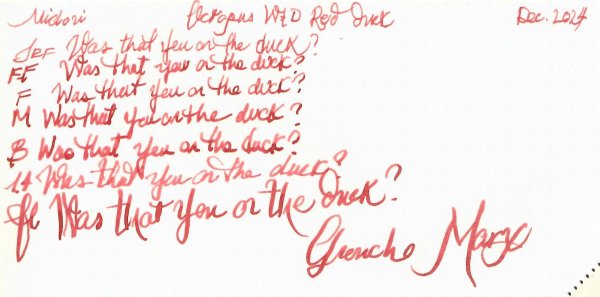 Midori Octopus W&D Red Duck Dec. 2024
JEF Was that you or the duck?
FF Was that you or the duck?
F Was that you or the duck?
M Was that you or the duck?
B Was that you or the duck?
1.1 Was that you or the duck?
fl Was that you or the duck?
Groucho Marx